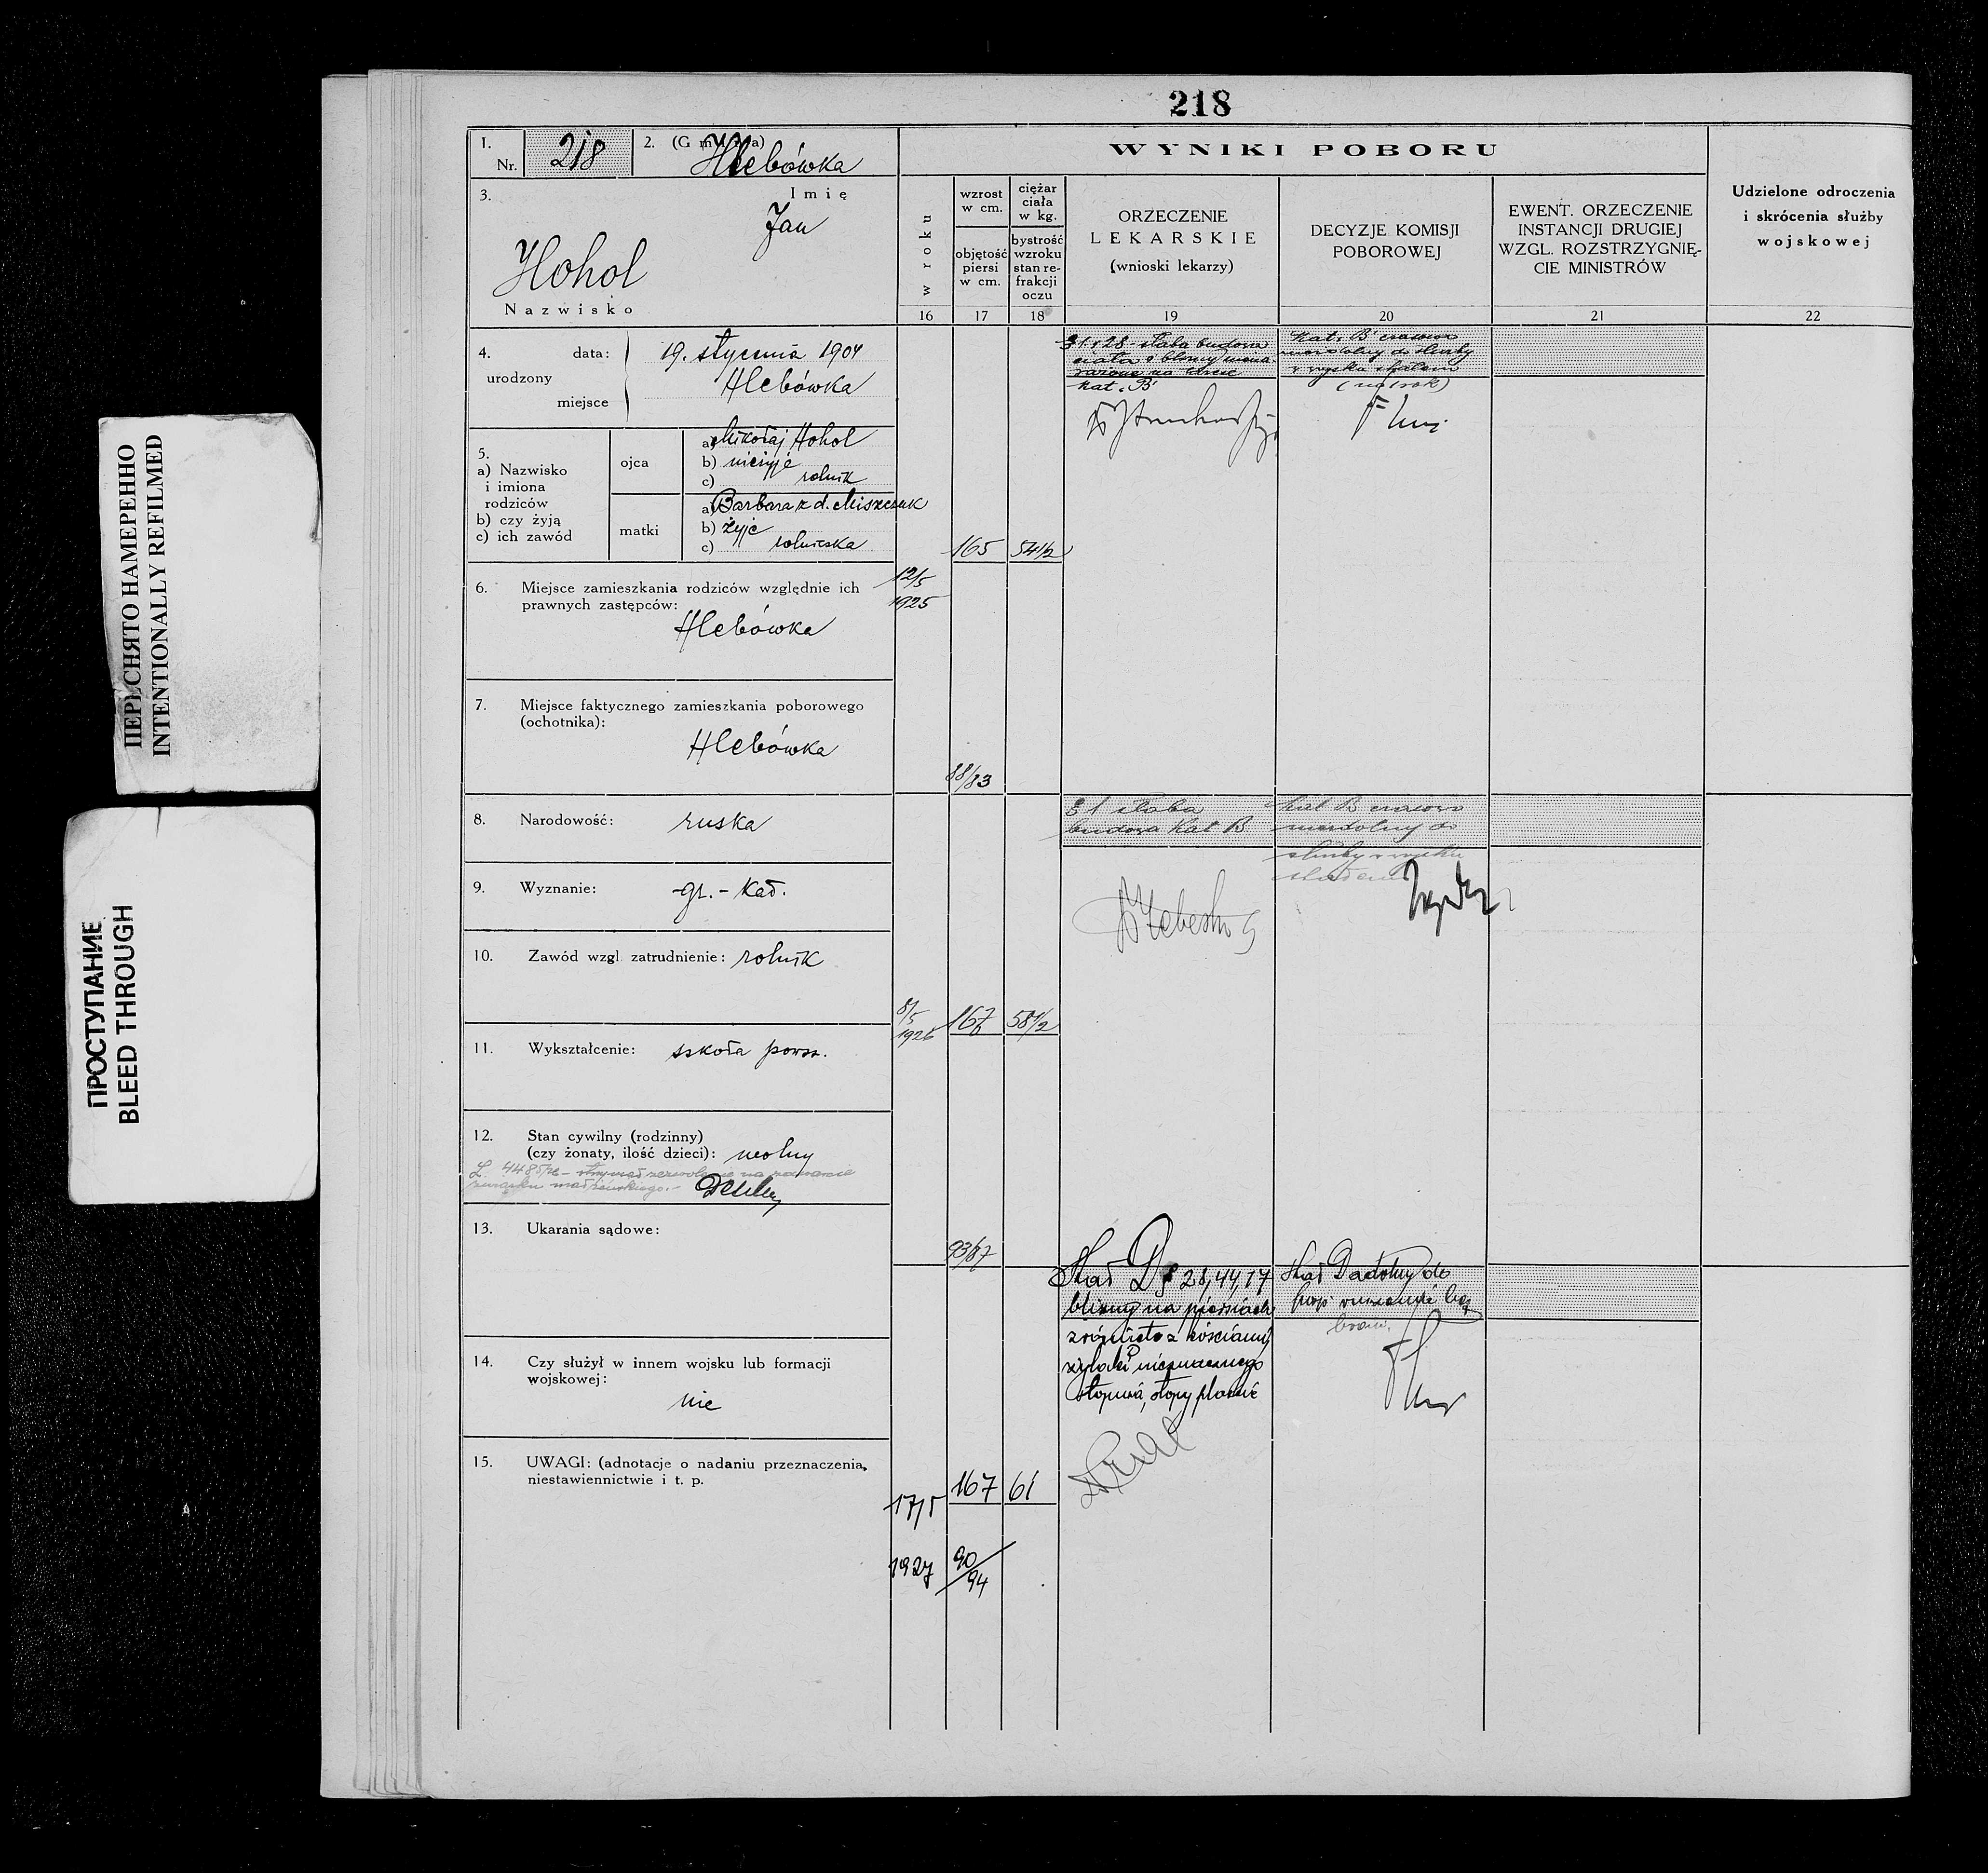 ПЕРЕСНЯТО НАМЕРЕННО
INTENTIONALLY REFILMED
ПРОСТУПАНИЕ
BLEED THROUGH
218
1.
Nr. 218
2. (Gmina)
Hlebówka
3.
Imię
Jan
Hohol
Nazwisko
4. data: 19. stycznia 1904
urodzony
Hlebówka
miejsce
5.
a) Nazwisko
i imiona
rodziców
b) czy żyją
c) ich zawód
ojca
a) Mikołaj Hohol
b) nieżyje
c) rolnik
matki
a) Barbara z d. Miszczuk
b) żyje
c) rolniczka
6. Miejsce zamieszkania rodziców względnie ich
prawnych zastępców:
Hlebówka
7. Miejsce faktycznego zamieszkania poborowego
(ochotnika):
Hlebówka
8. Narodowość: ruska
9. Wyznanie: gr.-kat.
10. Zawód wzgl. zatrudnienie: rolnik
11. Wykształcenie: szkoła powsz.
12. Stan cywilny (rodzinny)
(czy żonaty, ilość dzieci): wolny
na zawarcie
związku małżeńskiego.-
13. Ukarania sądowe:
14. Czy służył w innem wojsku lub formacji
wojskowej:
nie
15. UWAGI: (adnotacje o nadaniu przeznaczenia,
niestawiennictwie i t. p.
WYNIKI POBORU
w roku
16
wzrost
w cm.
objętość
piersi
w cm.
17
ciężar
ciała
w kg.
bystrość
wzroku
stan re-
frakcji
oczu
18
ORZECZENIE
LEKARSKIE
(wnioski lekarzy)
19
DECYZJE KOMISJI
POBOROWEJ
20
EWENT. ORZECZENIE
INSTANCJI DRUGIEJ
WZGL. ROZSTRZYGNIĘ-
CIE MINISTRÓW
21
Udzielone odroczenia
i skrócenia służby
wojskowej
22
12/5
1925
165
54 1/2
88/83
§ 1 i 28 słaba budowa
ciała
kat. B
Kat. B czasowo
niezdolny do służby
w wojsku stałem
(na 1 rok)
8/5
1926
167
58 1/2
93/87
§ 1 słaba
budowa Kat B
Kat B czasowo
niezdolny do
służby w wojsku
stałem
17/5
1927
167
61
90/94
Kat D § 28,44,17
blizny na piersiach
zrośnięte z kościami,
żylaki nieznacznego
stopnia, stopy płaskie
Kat D zdolny do
posp. ruszenia bez
broni.